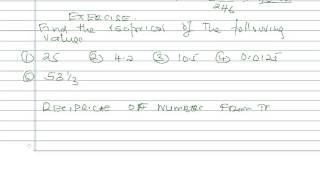 246
EXERCISE
Find the reciprical of The following
values
① 25 ② 4.2 ③ 10.5 ④ 0.0125
⑤ 53 1/3
RECIPRICAL OF NUMBERS FROM